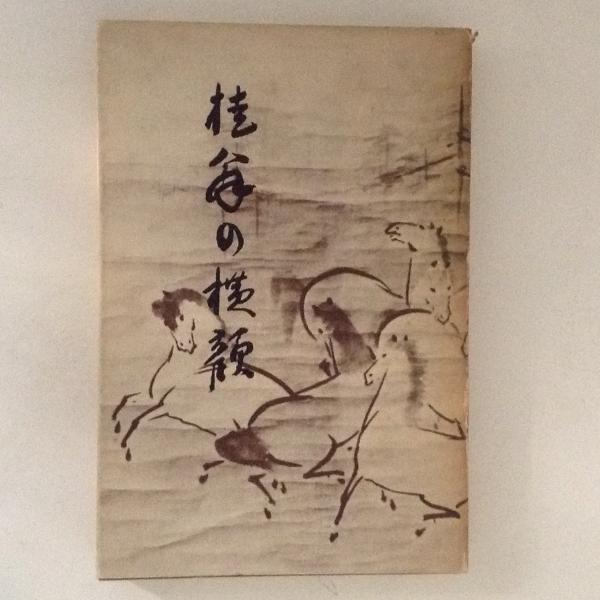 桂翁の横顔